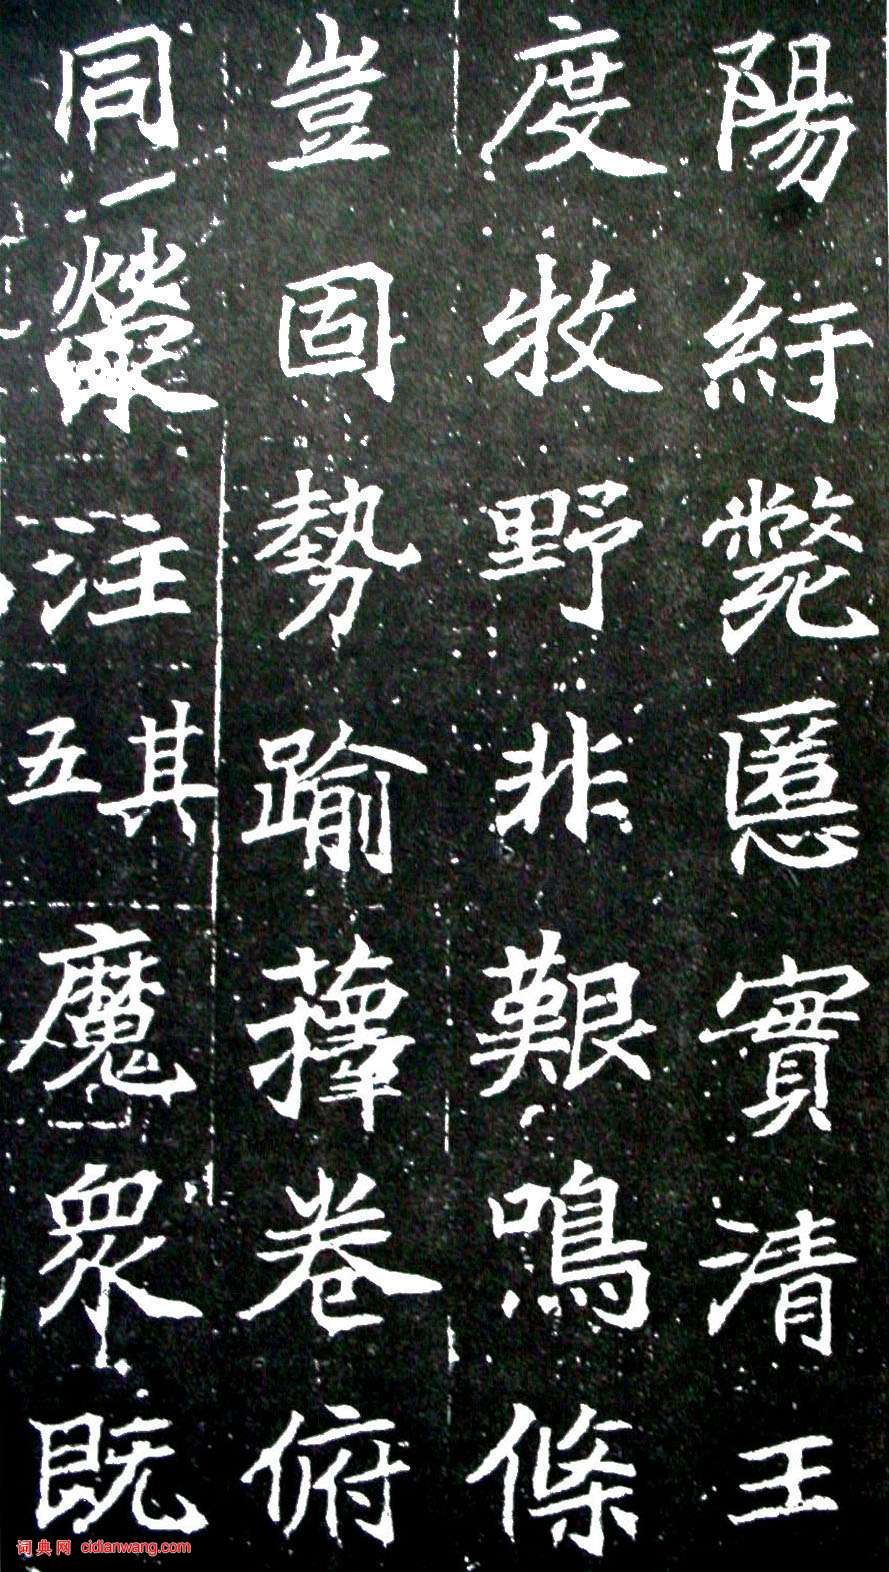 陽紆斃慝實清王
度牧野非艱鳴條
豈固勢踰蘀卷俯
同注其五魔眾既
词典网 cidianwang.com